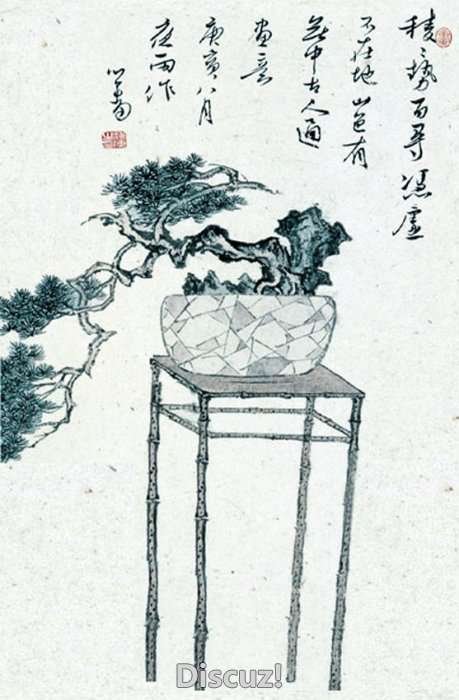 稜〻勢百尋憑虛
不在地山色有
無中古人通
畫意
庚寅八月
夜雨作
心畬
Discuz!